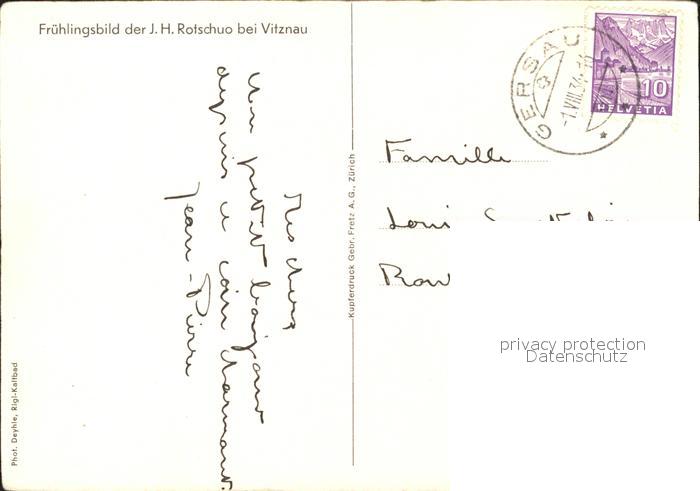 Frühlingsbild der J. H. Rotschuo bei Vitznau
GERSAU
-1.VIII.34
10
HELVETIA
Mes chers
Un petit bonjour
depuis ce coin charmant.
Jean-Pierre
Famille
Kupferdruck Gebr. Fretz A. G., Zürich
Phot. Deyhle, Rigi-Kaltbad
privacy protection
Datenschutz